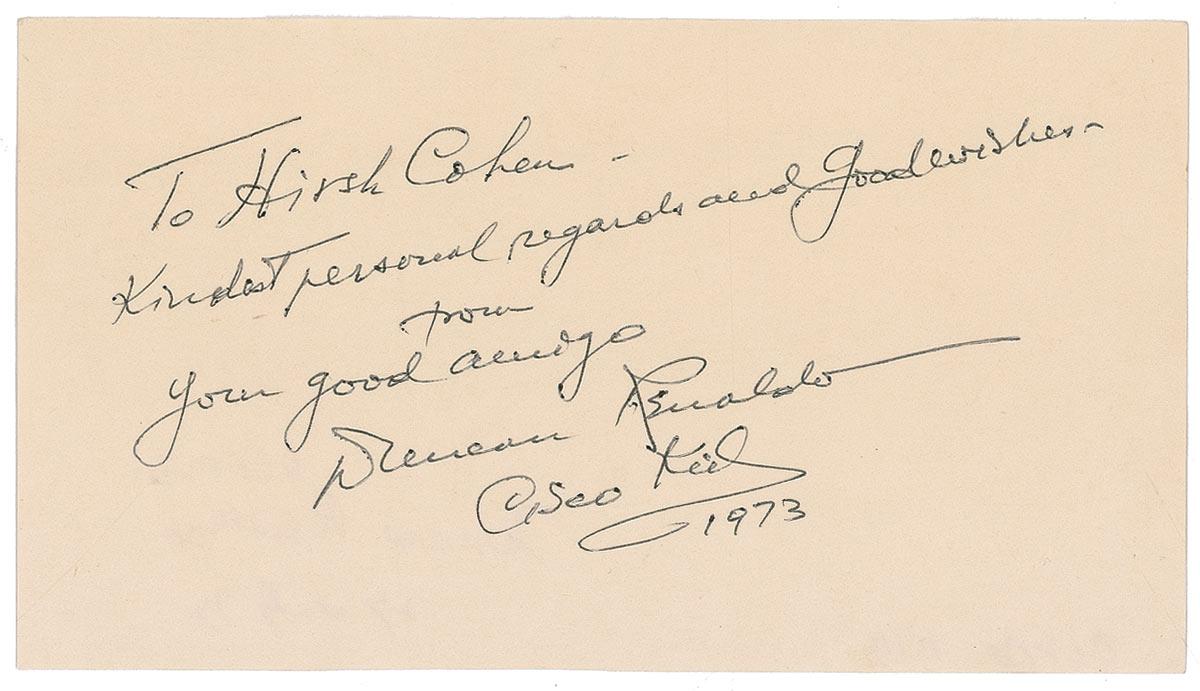 To Hirsh Cohen -
Kindest personal regards and Good wishes -
from
your good amigo
Duncan Renaldo
Cisco Kid
1973